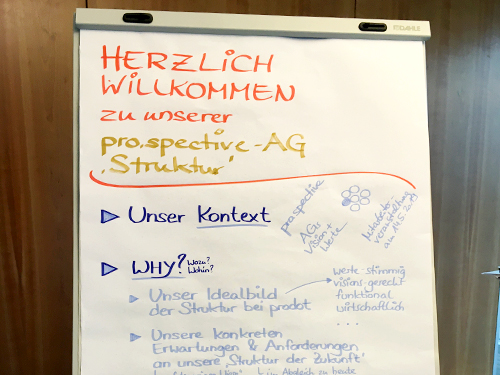 DAHLE
HERZLICH
WILLKOMMEN
zu unserer
pro.spective-AG
'Struktur'
Unser Kontext
prospective
AG:
Vision +
Werte
Mitarbeiter
veranstaltung
WHY? Wozu?
Wohin?
Unser Idealbild
der Struktur bei prodot
werte-stimmig
visions-gerecht
funktional
wirtschaftlich
...
Unsere konkreten
Erwartungen & Anforderungen
an unsere 'Struktur der Zukunft'
im Abgleich zu heute